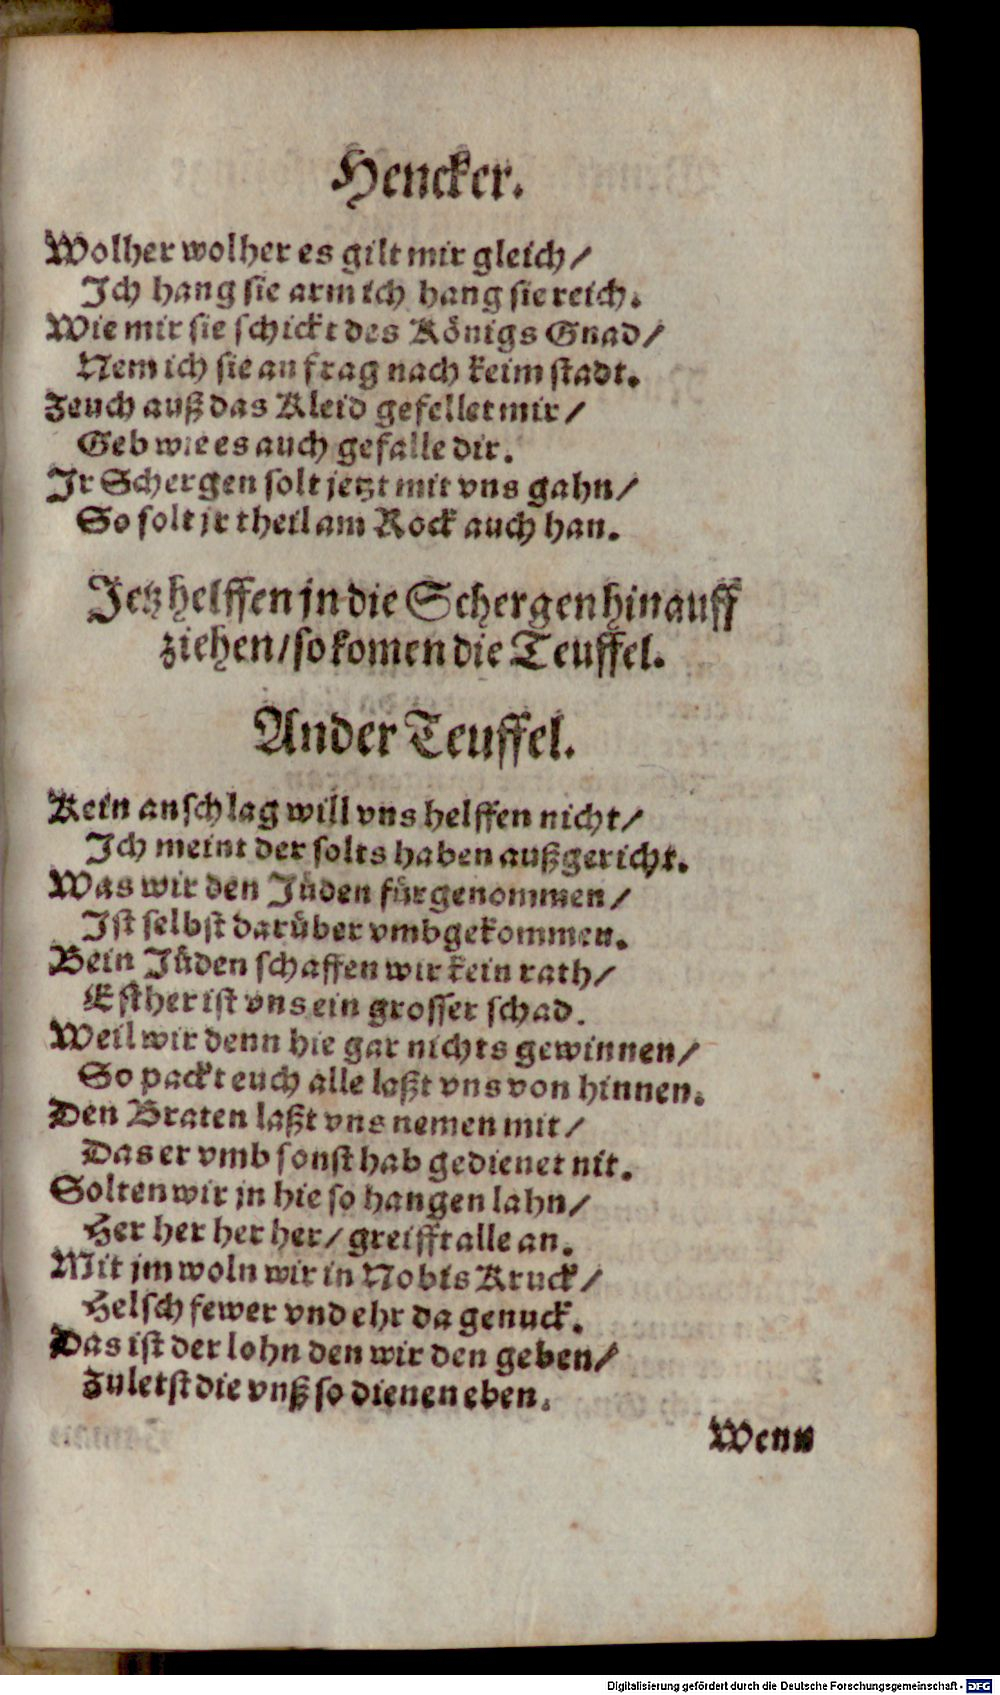 Hencker.
Wolher wolher es gilt mir gleich/
Ich hang sie arm ich hang sie reich.
Wie mir sie schickt des Königs Gnad/
Nem ich sie an frag nach keim stadt.
Zeuch auß das Kleid gefellet mir/
Geb wie es auch gefalle dir.
Ir Schergen solt jetzt mit vns gahn/
So solt jr theil am Rock auch han.
Jetz helffen jn die Schergen hinauff
ziehen/ so komen die Teuffel.
Ander Teuffel.
Kein anschlag will vns helffen nicht/
Ich meint der solts haben außgericht.
Was wir den Jüden fürgenommen/
Ist selbst darüber vmbgekommen.
Bein Jüden schaffen wir kein rath/
Esther ist vns ein grosser schad.
Weil wir denn hie gar nichts gewinnen/
So packt euch alle laßt vns von hinnen.
Den Braten laßt vns nemen mit/
Das er vmb sonst hab gedienet nit.
Solten wir jn hie so hangen lahn/
Her her her her/ greifft alle an.
Mit jm woln wir in Nobis Kruck/
Helsch fewer vnd ehr da genuck.
Das ist der lohn den wir den geben/
Zuletst die vnß so dienen eben.
Wenn
Digitalisierung gefördert durch die Deutsche Forschungsgemeinschaft - DFG